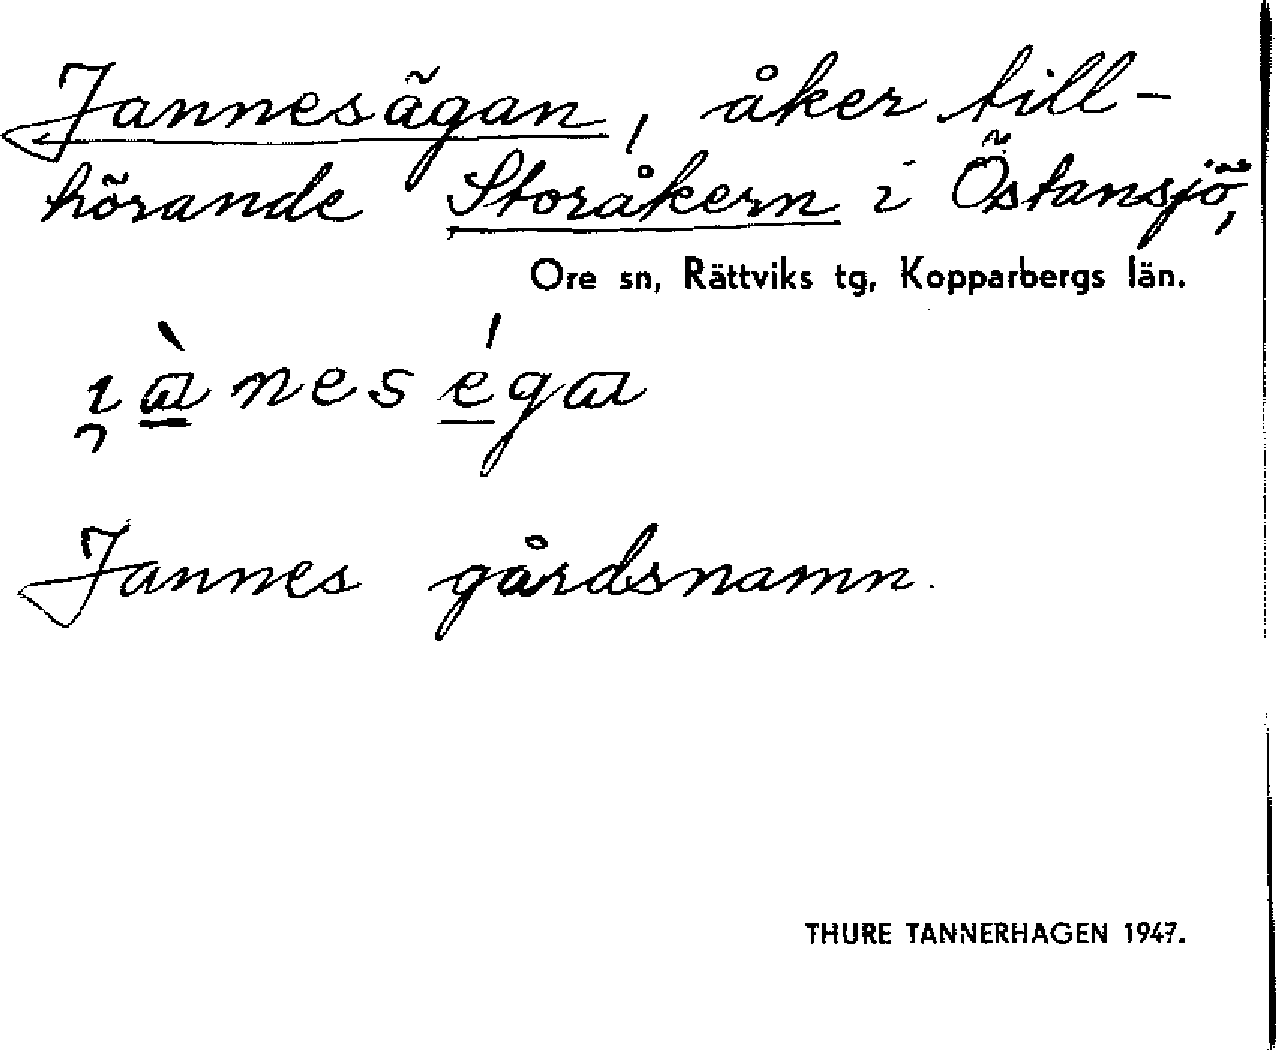 Jannesägan, åker till-
hörande Storåkern i Östansjö,
Ore sn, Rättviks tg, Kopparbergs län.
Jannes gårdsnamn.
THURE TANNERHAGEN 1947.